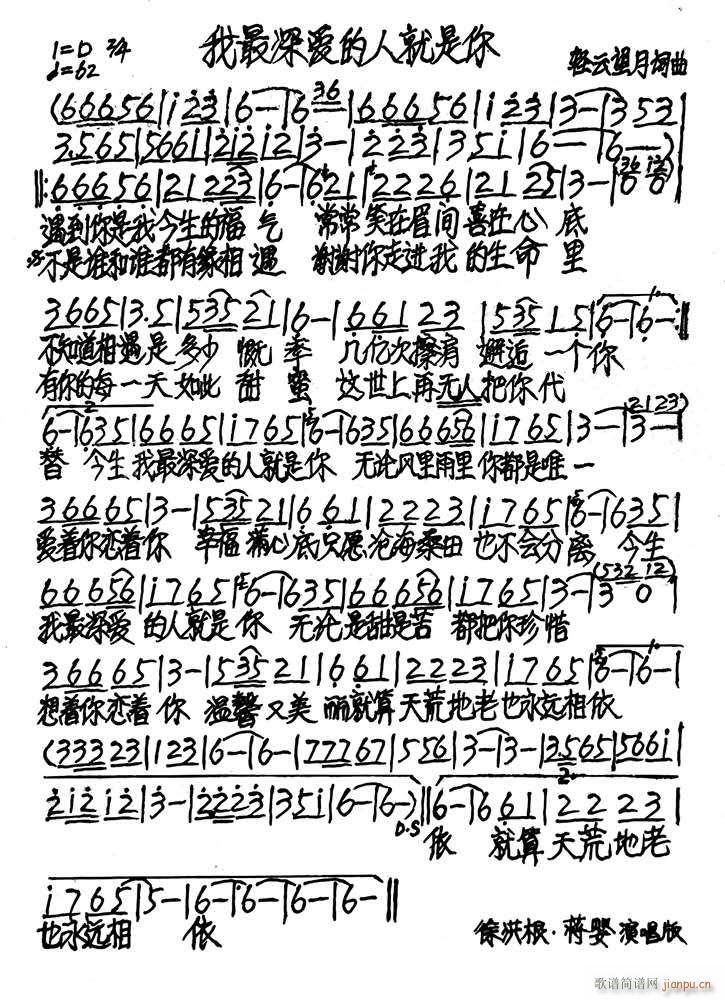 我最深爱的人就是你
1=D 2/4
♩=62
轻云望月词曲
(66656|i23|6-|636-|66656|i23|3-|353|
3.565|5661|2i2i2|3-|2233|35i|6-|6-)|
‖:66656|21223|6-|621|22226|2125|3-|00|
遇到你是我今生的福气 常常笑在眉间喜在心底
不是谁和谁都有缘相遇 谢谢你走进我的生命里
3665|3.5|53521|6-|66123|53515|6-|6-:‖
不知道相遇是多少慨率 几亿次擦肩邂逅一个你
有你的每一天如此甜蜜 这世上再无人把你代
6-|635|6665|i765|6-|635|66656|i765|3-|3-|
替 今生我最深爱的人就是你 无论风里雨里你都是唯一
36665|3-|53521|661|2223|i765|6-|635|
爱着你恋着你 幸福满心底只愿沧海桑田也不会分离 今生
66656|i765|6-|635|66656|i765|3-|30|
我最深爱的人就是你 无论是甜是苦都把你珍惜
36665|3-|53521|661|2223|i765|6-|6-|
想着你恋着你 温馨又美丽就算天荒地老也永远相依
(33323|123|6-|6-|77767|556|3-|3-|3.565|566i|
2i2i2|3-|2223|35i|6-|6-)‖6-|661|2223|
D.S
依 就算天荒地老
i765|5-|6-|6-|6-|6-‖
也永远相 依
徐洪根·蒋婴演唱版
歌谱简谱网
jianpu.cn